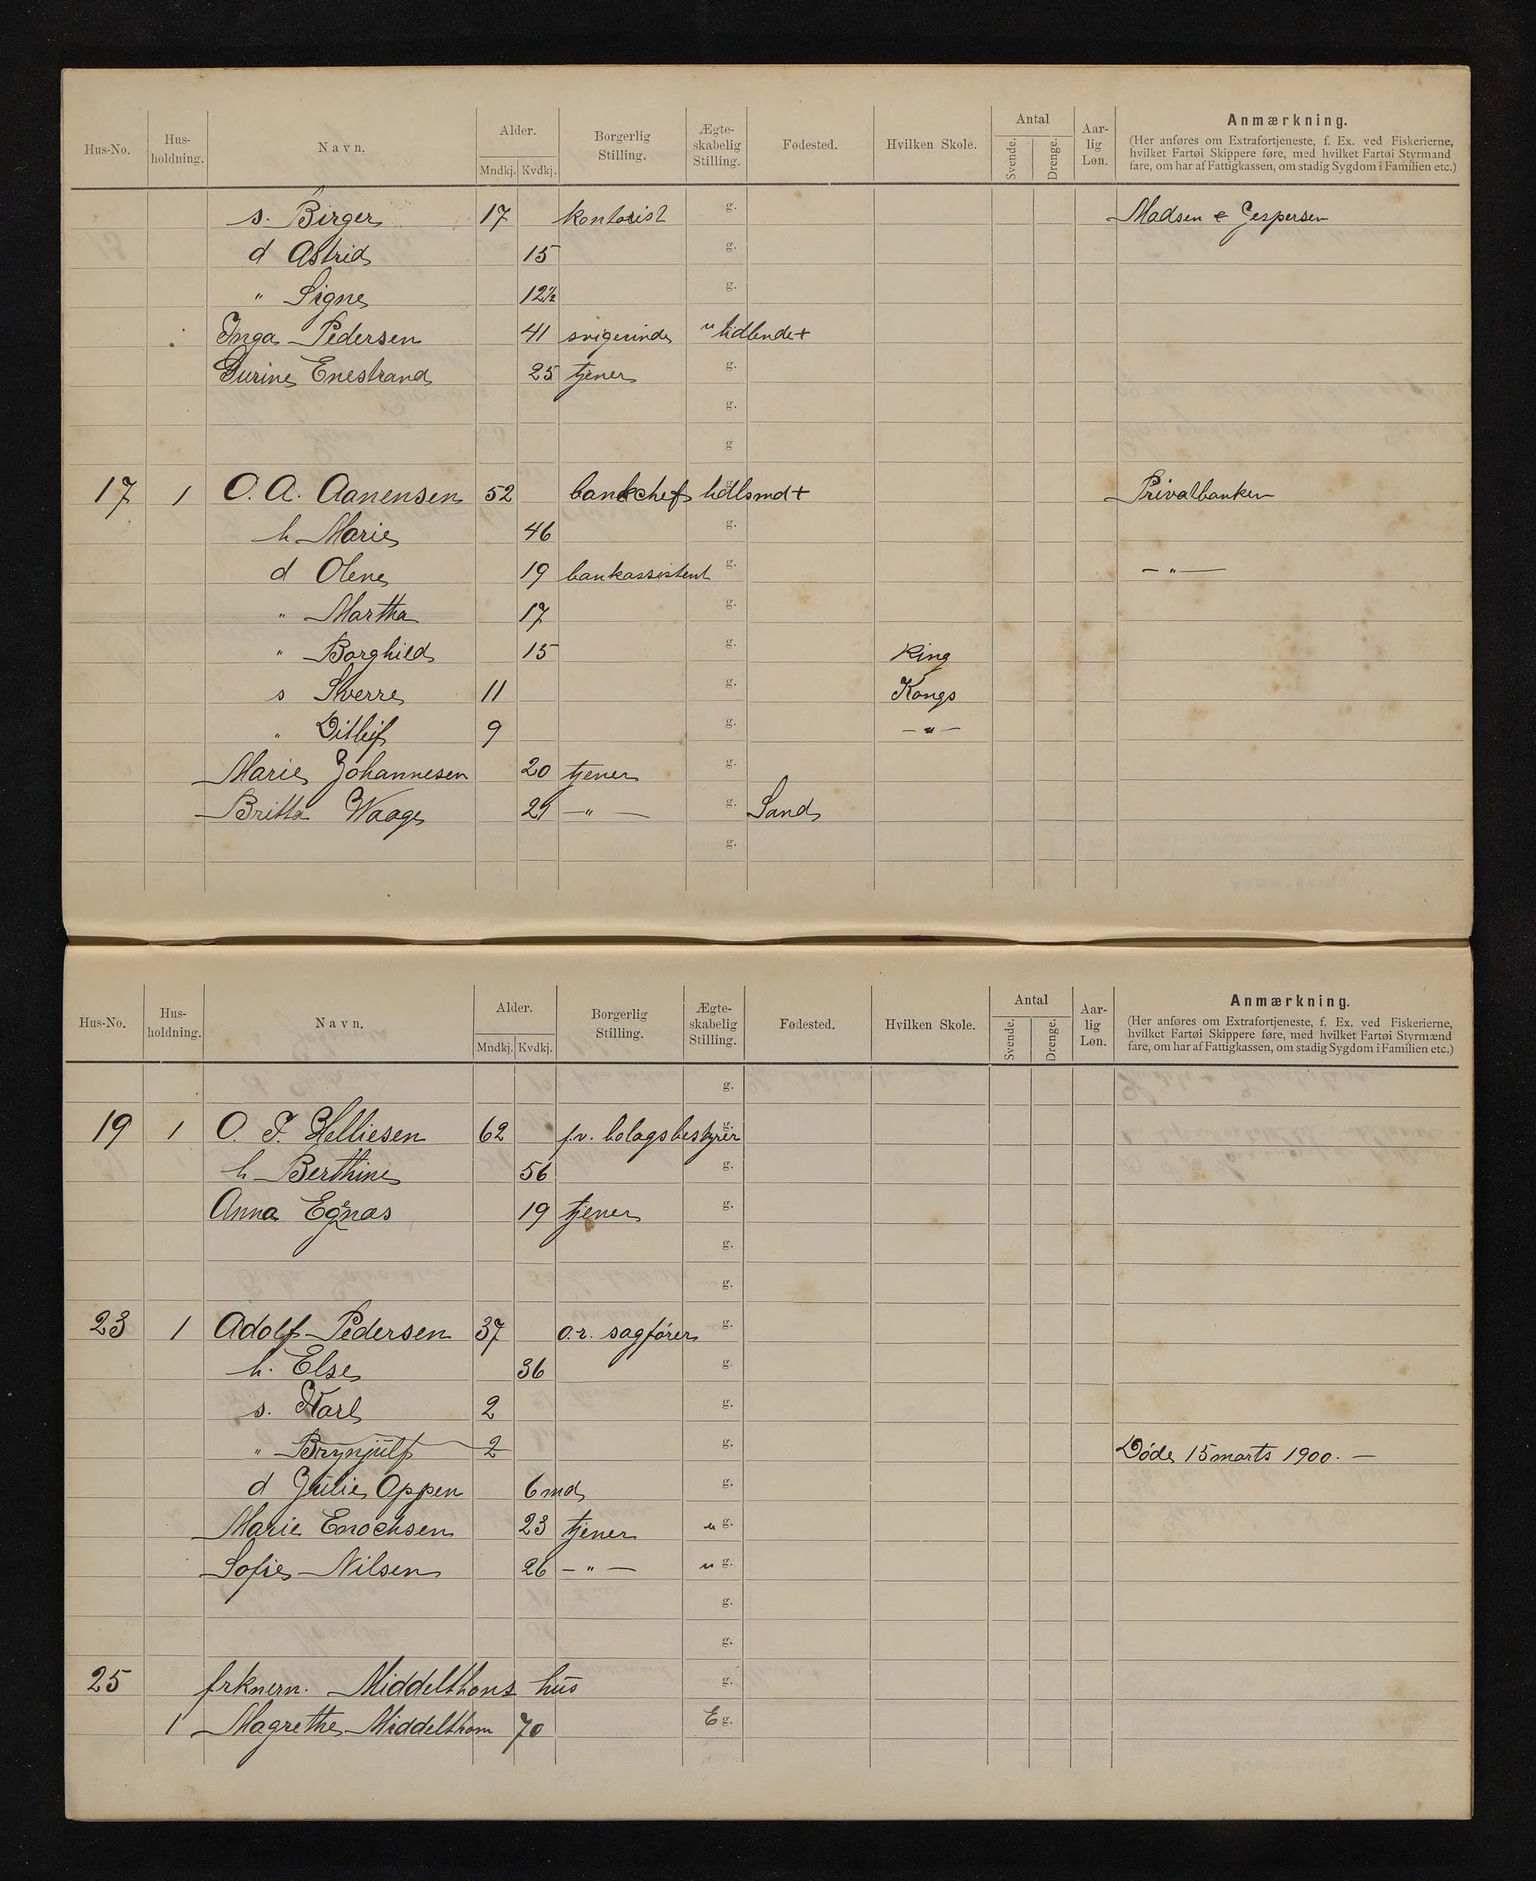 Hus-No. Hus-holdning. Navn. Alder. Mndkj. Kvdkj. Borgerlig Stilling. Ægte-skabelig Stilling. Fødested. Hvilken Skole. Antal Svende. Drenge. Aar-lig Løn. Anmærkning.
(Her anføres om Extrafortjeneste, f. Ex. ved Fiskerierne,
hvilket Fartøi Skippere føre, med hvilket Fartøi Styrmænd
fare, om har af Fattigkassen, om stadig Sygdom i Familien etc.)
s. Birger 17 kontorist g. Madsen & Jespersen
d Astrid 15 g.
" Signe 12½ g.
Inga Pedersen 41 svigerinde u
Gurine Enestrand 25 tjener g.
g.
g
17 1 O. A. Aanensen 52 bankchef Privatbanken
h Marie 46 g.
d Olene 19 bankassistent g. - " -
" Martha 17 g.
" Borghild 15 g. King
s Sverre 11 g. Kongs
" Ditleif 9 g. - " -
Marie Johannesen 20 tjener g.
Britta Waage 29 - " - g. Sand
g.
Hus-No. Hus-holdning. Navn. Alder. Mndkj. Kvdkj. Borgerlig Stilling. Ægte-skabelig Stilling. Fødested. Hvilken Skole. Antal Svende. Drenge. Aar-lig Løn. Anmærkning.
(Her anføres om Extrafortjeneste, f. Ex. ved Fiskerierne,
hvilket Fartøi Skippere føre, med hvilket Fartøi Styrmænd
fare, om har af Fattigkassen, om stadig Sygdom i Familien etc.)
g.
19 1 O. F. Helliesen 62 f.v. bolagsbestyrer g.
h Berthine 56 g.
Anna Egenæs 19 tjener g.
g.
g.
23 1 Adolf Pedersen 37 o.r. sagfører g.
h. Else 36 g.
s. Karl 2 g.
" Brynjulf 2 g. Døde 15 marts 1900. -
d Julie Oppen 6 md g.
Marie Enochsen 23 tjener u g.
Sofie Nilsen 26 - " - u g.
g.
g.
25 frknern. Middelthons hus g.
1 Magrethe Middelthon 70 E g.